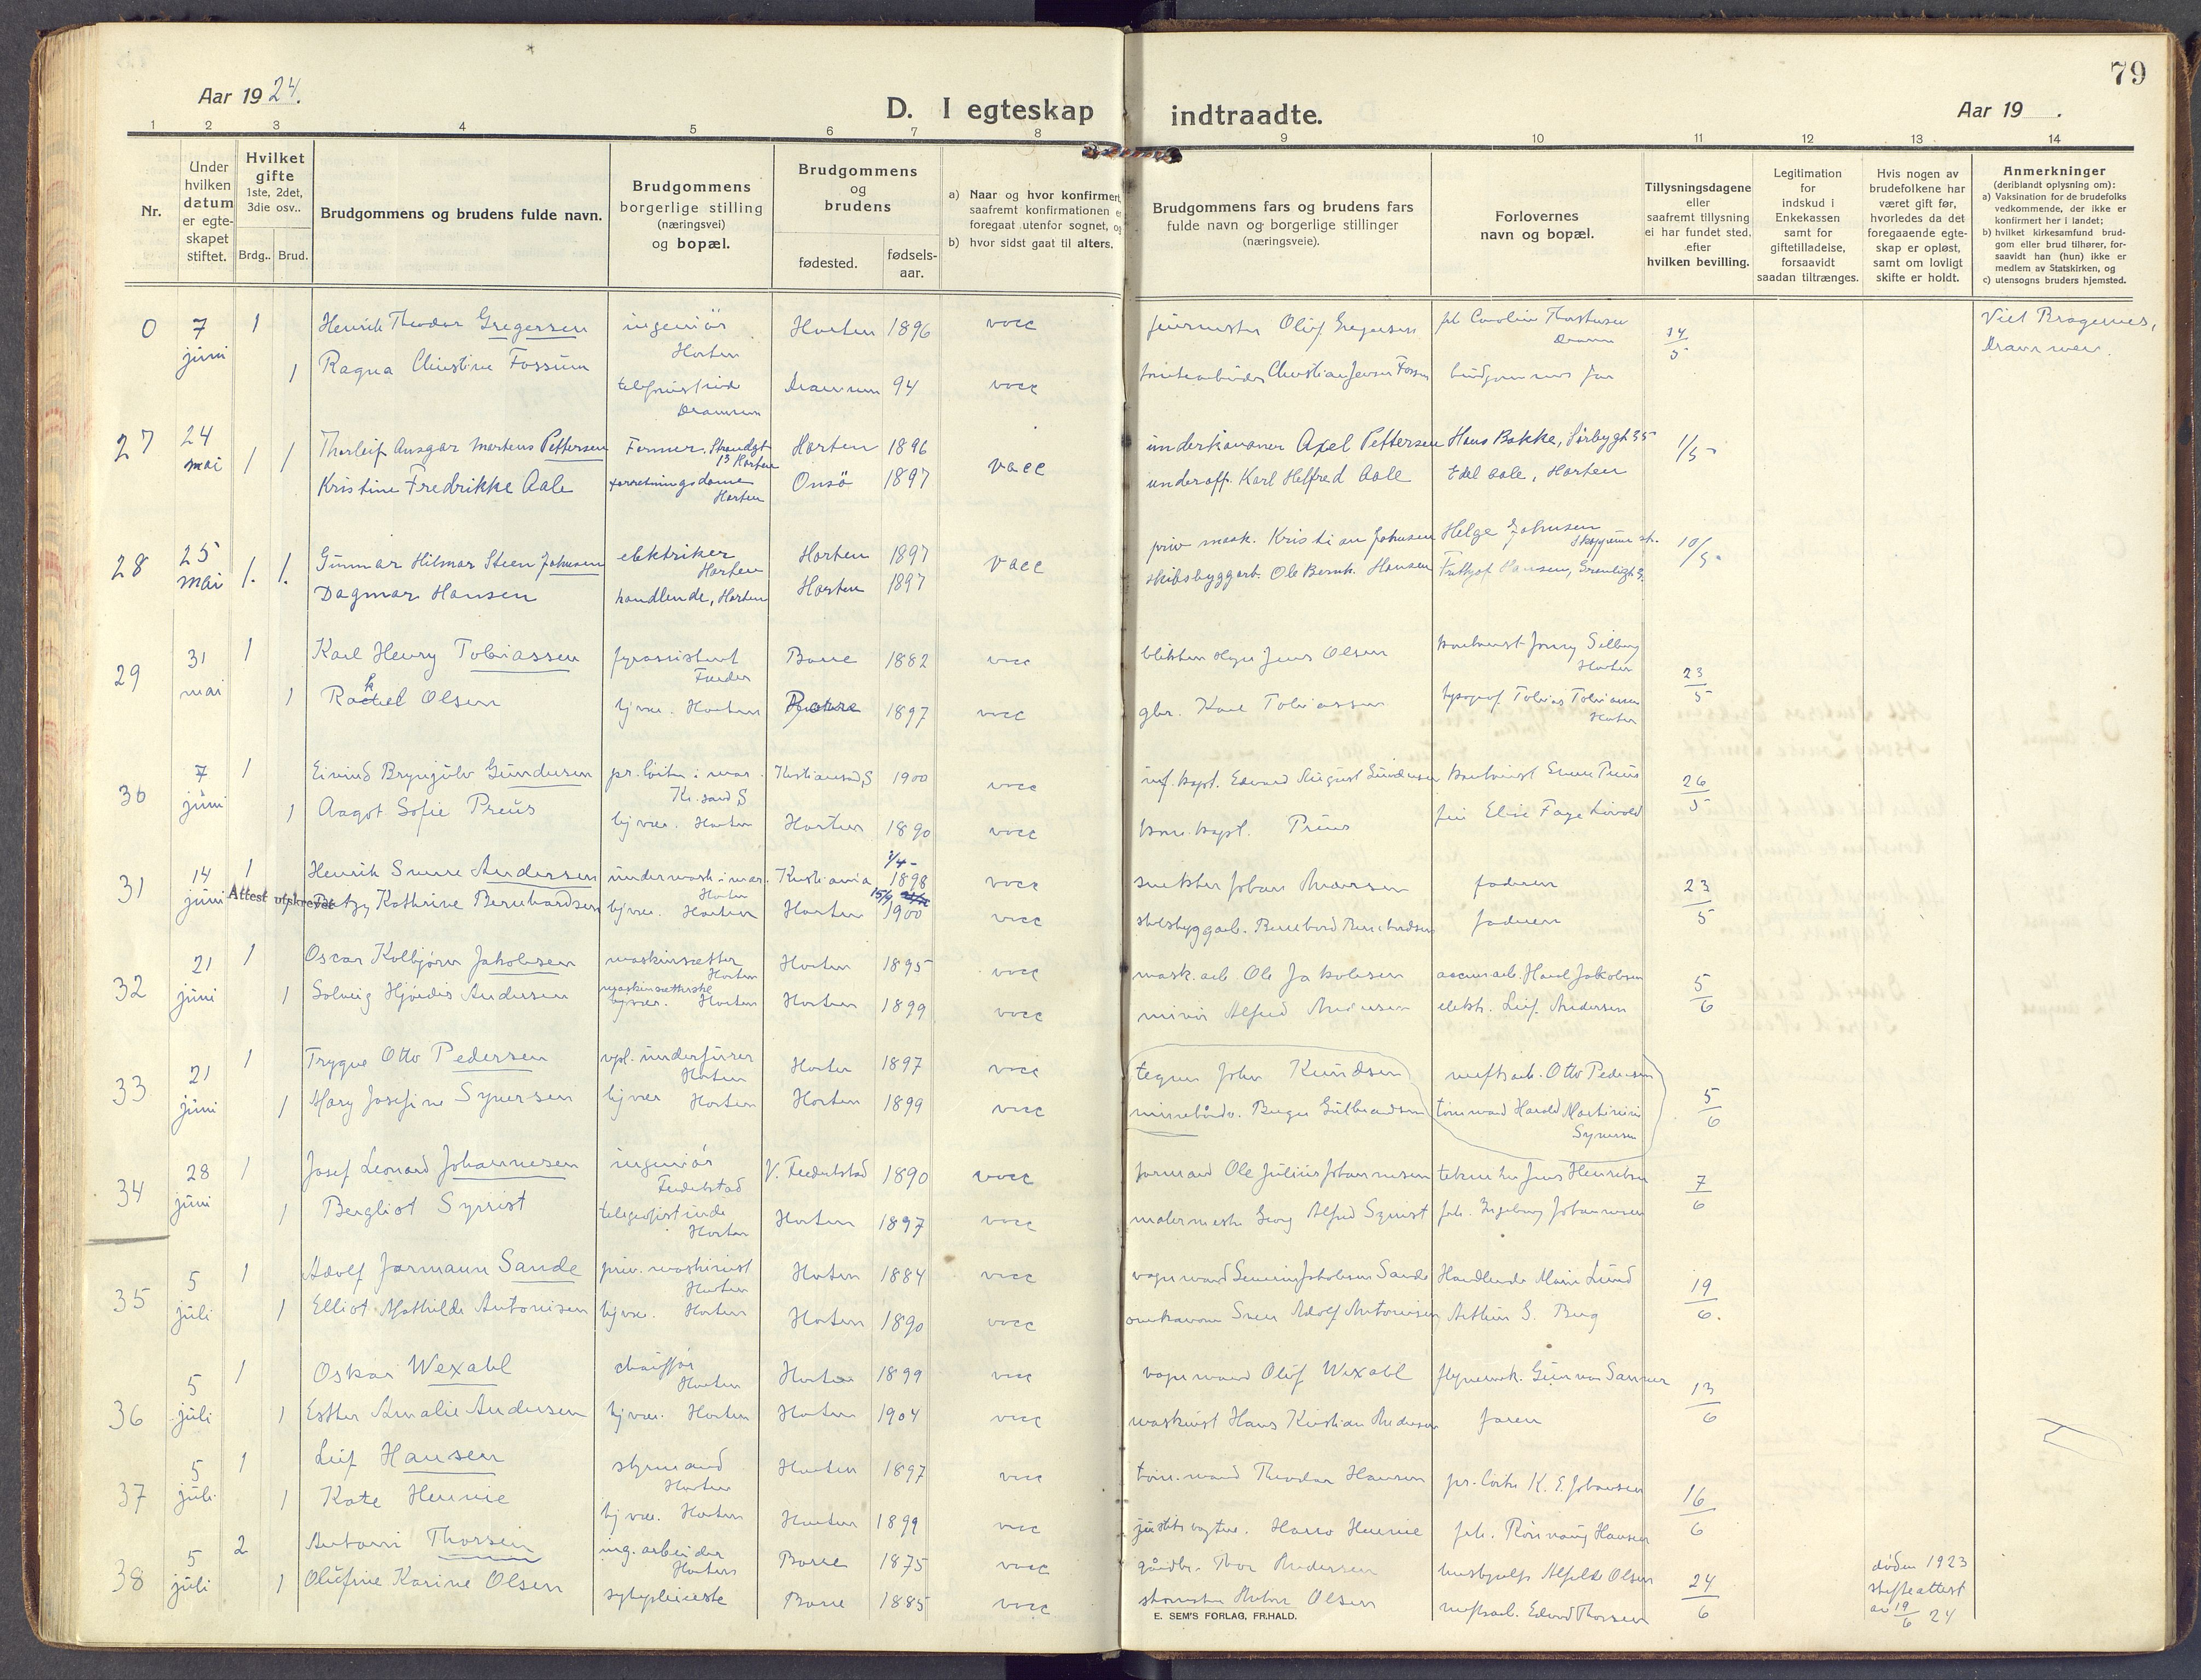 79
Aar 1924.
D. I egteskap indtraadte.
Aar 19 .
1 2 3 4 5 6 7 8 9 10 11 12 13 14
Nr.
Under hvilken datum er egteskapet stiftet.
Hvilket gifte 1ste, 2det, 3die osv..
Brdg.. Brud.
Brudgommens og brudens fulde navn.
Brudgommens borgerlige stilling (næringsvei) og bopæl.
Brudgommens og brudens
fødested.
fødsels-aar.
a) Naar og hvor konfirmert, saafremt konfirmationen er foregaat utenfor sognet, og
b) hvor sidst gaat til alters.
Brudgommens fars og brudens fars fulde navn og borgerlige stillinger (næringsveie).
Forlovernes navn og bopæl.
Tillysningsdagene eller saafremt tillysning ei har fundet sted, efter hvilken bevilling.
Legitimation for indskud i Enkekassen samt for giftetilladelse, forsaavidt saadan tiltrænges.
Hvis nogen av brudefolkene har været gift før, hvorledes da det foregaaende egteskap er opløst, samt om lovligt skifte er holdt.
Anmerkninger (deriblandt oplysning om):
a) Vaksination for de brudefolks vedkommende, der ikke er konfirmert her i landet;
b) hvilket kirkesamfund brudgom eller brud tilhører, forsaavidt han (hun) ikke er medlem av Statskirken, og
c) utensogns bruders hjemsted.
0 7 juni 1 Henrik Theodor Gregersen ingeniör Horten 1896 vacc Oluf Gregersen 14/5 Viet Bragernes, Drammen.
1 Ragna Christine Fossum telefonistinde Drammen Drammen 94 vacc Christian Jensen Fossum brudgommens far
27 24 mai 1 1 Thorleif Ansgar Martens Pettersen Former. Strandgt 13 Horten Horten 1896 vacc underkanoner Axel Pettersen Hans Bakke, Sörbygt 35 1/5
Kristine Fredrikke Aale forretningsdame Horten Onsö 1897 underoff. Karl Helfred Aale Edel Aale, Horten
28 25 mai 1. 1. Gunnar Hilmar Steen Johnsen elektriker Horten Horten 1897 vacc priv mask. Kristian Johnsen Helge Johnsen 10/5
Dagmar Hansen handlende, Horten Horten 1897 skibsbyggarb. Ole Bernh. Hansen Fritjof Hansen,
29 31 mai 1 Karl Henry Tobiassen fyrassistent Færder Borre 1882 vacc Jens Olsen Horten 23/5
1 Rakel Olsen hj vær. Horten Borre 1897 vacc gbr. Karl Tobiassen typograf Tobias Tobiassen Horten
30 7 juni 1 Eivind Brynjulv Gundersen Kr.sand S Kristiansand S 1900 vacc Edvard August Gundersen 26/5
1 Aagot Sofie Preus hj vær. Horten Horten 1890 vacc Preus
31 14 juni 1 Henrik Sverre Andersen Horten Kristiania 1/4 - 1898 vacc Johan Andersen faderen 23/5
Attest utskrevet
Betzy Kathrine Bernhardsen hj vær. Horten Horten 15/9 1900 vacc skibsbyggarb. Bernhard Bernhardsen faderen
32 21 juni 1 Oscar Kolbjørn Jakobsen maskinsætter Horten Horten 1895 vacc mask.arb. Ole Jakobsen 5/6
1 Solveig Hjørdis Andersen maskinsetterske hj vær. Horten Horten 1899 vacc minör Alfred Andersen elektr. Leif Andersen
33 21 juni 1 Trygve Otto Pedersen Horten Horten 1897 vacc tegner John Knudsen verftsarb. Otto Pedersen 5/6
1 Mary Josefine Syversen hj vær Horten Horten 1899 vacc Birger Gulbrandsen tömmermand Harald Martinius Syversen
34 28 juni 1 Josef Leonard Johannesen ingeniör Fredrikstad V. Fredrikstad 1890 vacc formand Ole Julius Johannesen Jens Henriksen 7/6
1 Bergliot Syrrist telegrafistinde Horten Horten 1897 vacc malermester Georg Alfred Syrrist frk. Ingeborg Johannesen
35 5 juli 1 Adolf Jormann Sande priv. maskinist Horten Horten 1884 vacc Jakobsen Sande Handlende Marie Lund 19/6.
1 Elliot Mathilde Antonisen hj vær. Horten Horten 1890 vacc Sven Adolf Antonisen Arthur S. Berg
36 5 juli 1 Oskar Wexahl chauffør Horten Horten 1899 vacc Oluf Wexahl Gunnar Sanner 13/6
1 Esther Amalie Andersen hj vær. Horten Horten 1904 vacc maskinist Hans Kristian Andersen faren
37 5 juli 1 Leif Hansen styrmand Horten Horten 1897 vacc töm.mand Theodor Hansen K. E. Johansen 16/6
1 Kate Hennie hj vær. Horten Horten 1899 vacc Hennie frk. Hansen
38 5 juli 2 Antoni Thorsen arbeider Horten Borre 1875 vacc gårdbr. Thor Andersen Olsen 24/6 döden 1923 skifteattest av 19/6 24
1 Olufine Karine Olsen sykepleierske Borre 1885 vacc Anton Olsen verftsarb. Edvard Thorsen
E. SEM'S FORLAG, FR.HALD.